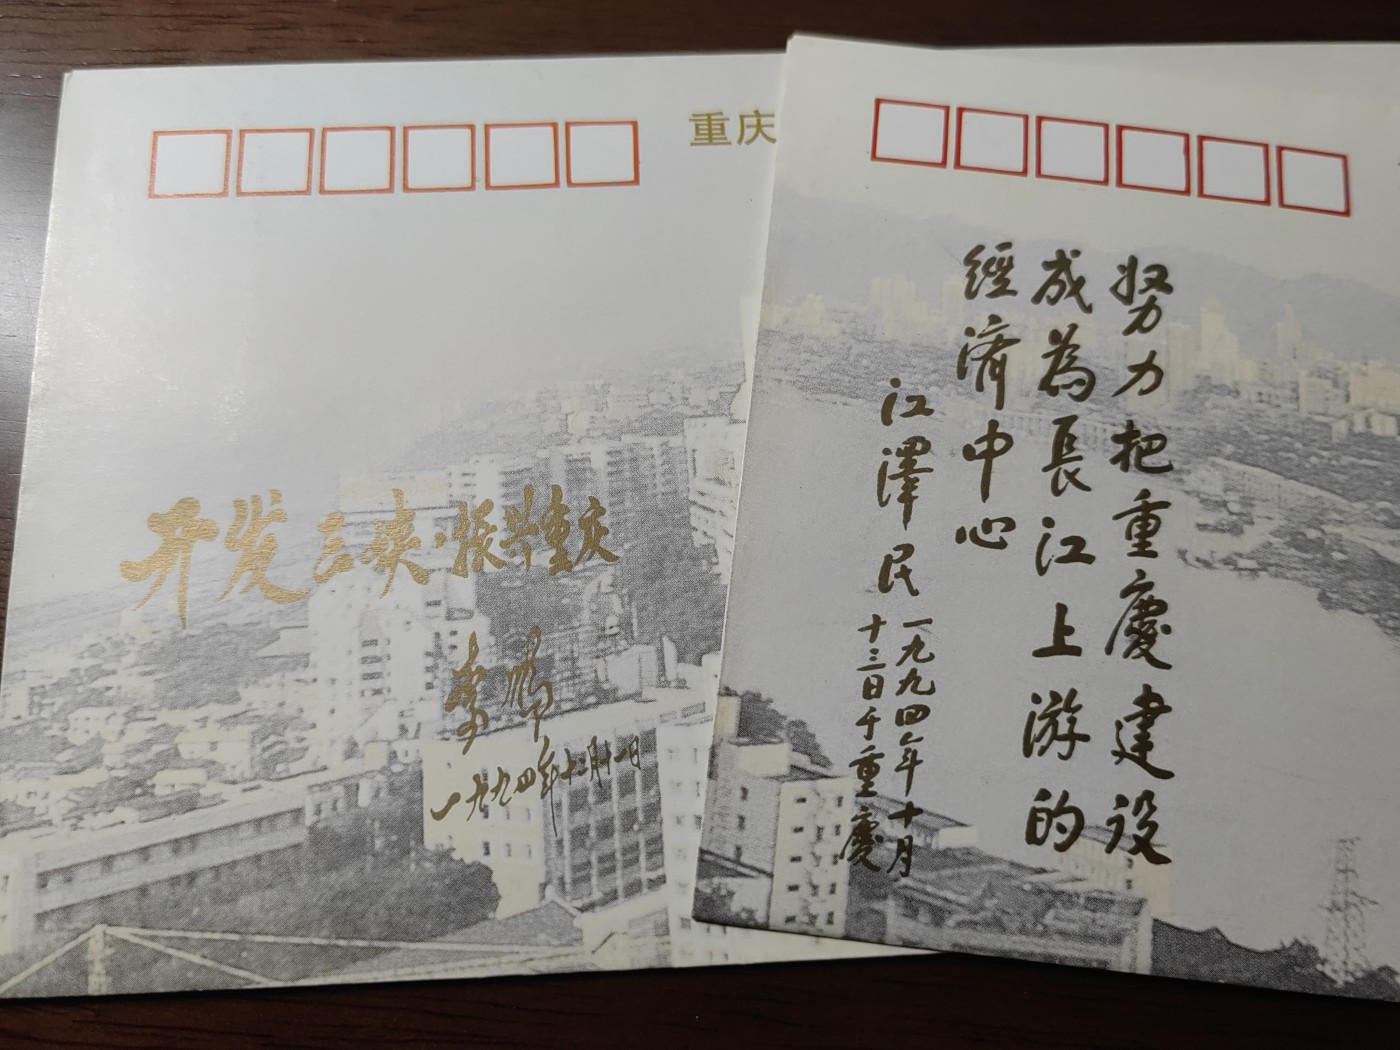 重庆
开发三峡·振兴重庆
李鹏
一九九四年十二月十一日
努力把重慶建設
成為長江上游的
經濟中心
江澤民
一九九四年十月
十三日于重慶